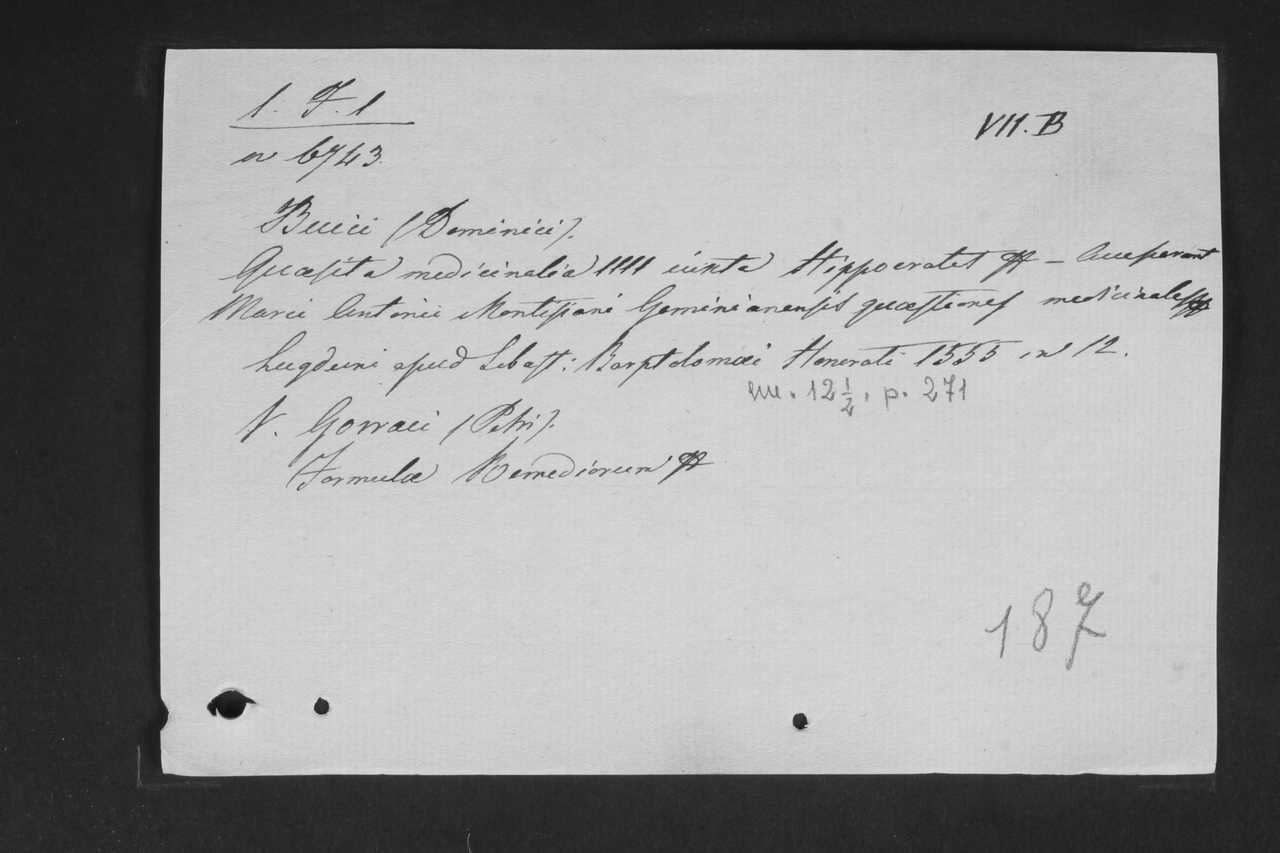 1. F. 1
VII. B
n 6743.
Bucii (Dominici).
Quæsita medicinalia 1111 iuxta Hippocratis — Accesserunt
Marci Antonii Montisiani Geminianensis quæstiones medicinales
Lugduni apud Sebast: Barptolomæi Honorati 1555 in 12.
12 1/2, p. 271
V. Gorræi (Petri).
Formulæ Remediorum
187